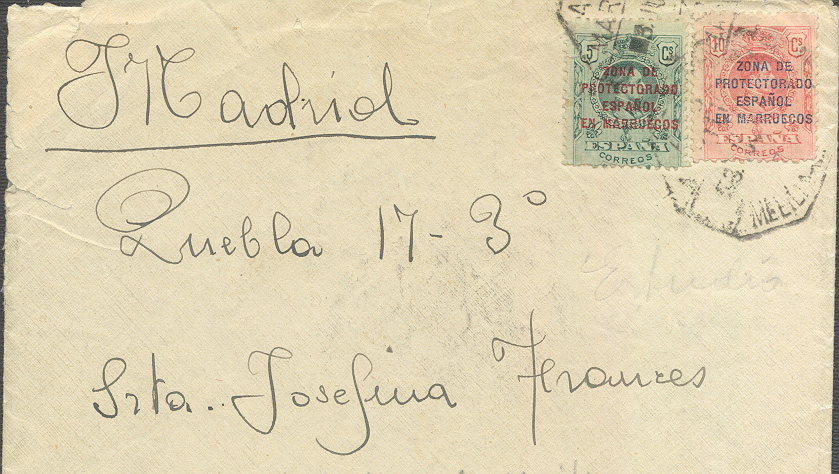 Madrid
Puebla 17-3º
Srta. Josefina Frances
5 Cs
ZONA DE
PROTECTORADO
ESPAÑOL
EN MARRUECOS
ESPAÑA
CORREOS
10 Cs
ZONA DE
PROTECTORADO
ESPAÑOL
EN MARRUECOS
ESPAÑA
CORREOS
MELILLA